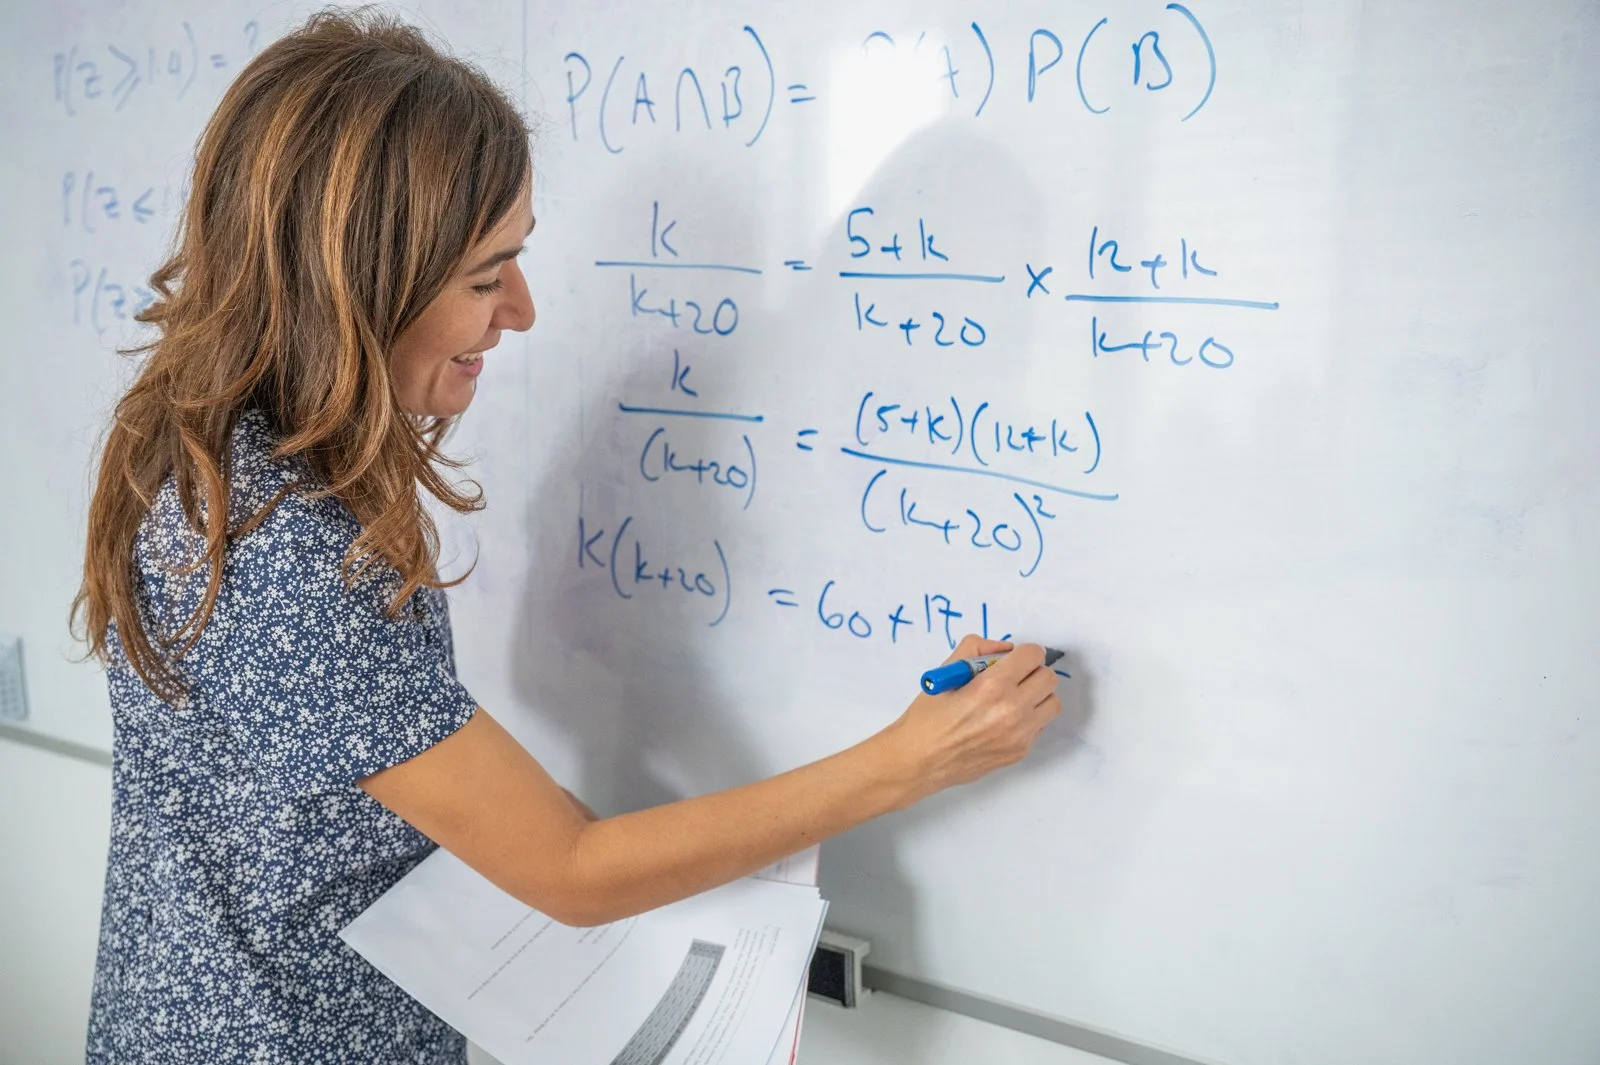 P(z ≥ 1.0) = ?
P(z <
P(z ≥
P(A ∩ B) = P(A) P(B)
k/(k+20) = (5+k)/(k+20) × (12+k)/(k+20)
k/(k+20) = (5+k)(12+k)/(k+20)²
k(k+20) = 60+17k